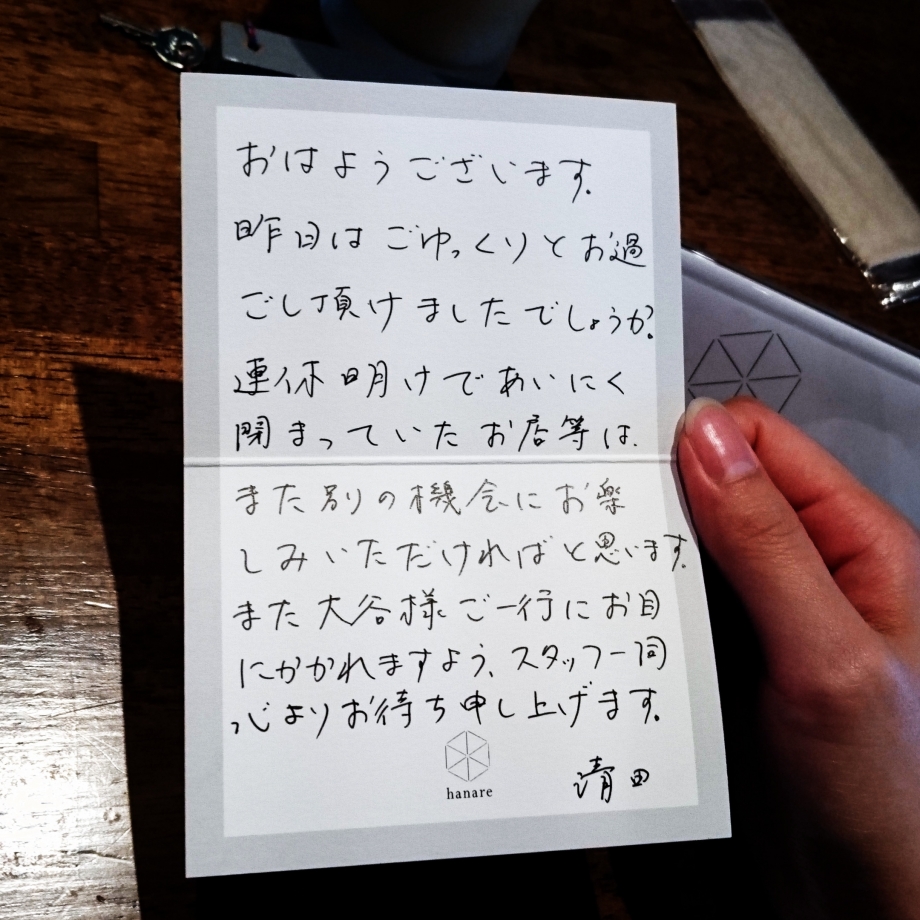 おはようございます。
昨日はごゆっくりとお過
ごし頂けましたでしょうか?
連休明けであいにく
閉まっていたお店等は、
また別の機会にお楽
しみいただければと思います。
また大谷様ご一行にお目
にかかれますよう、スタッフ一同
心よりお待ち申し上げます。
hanare
清田